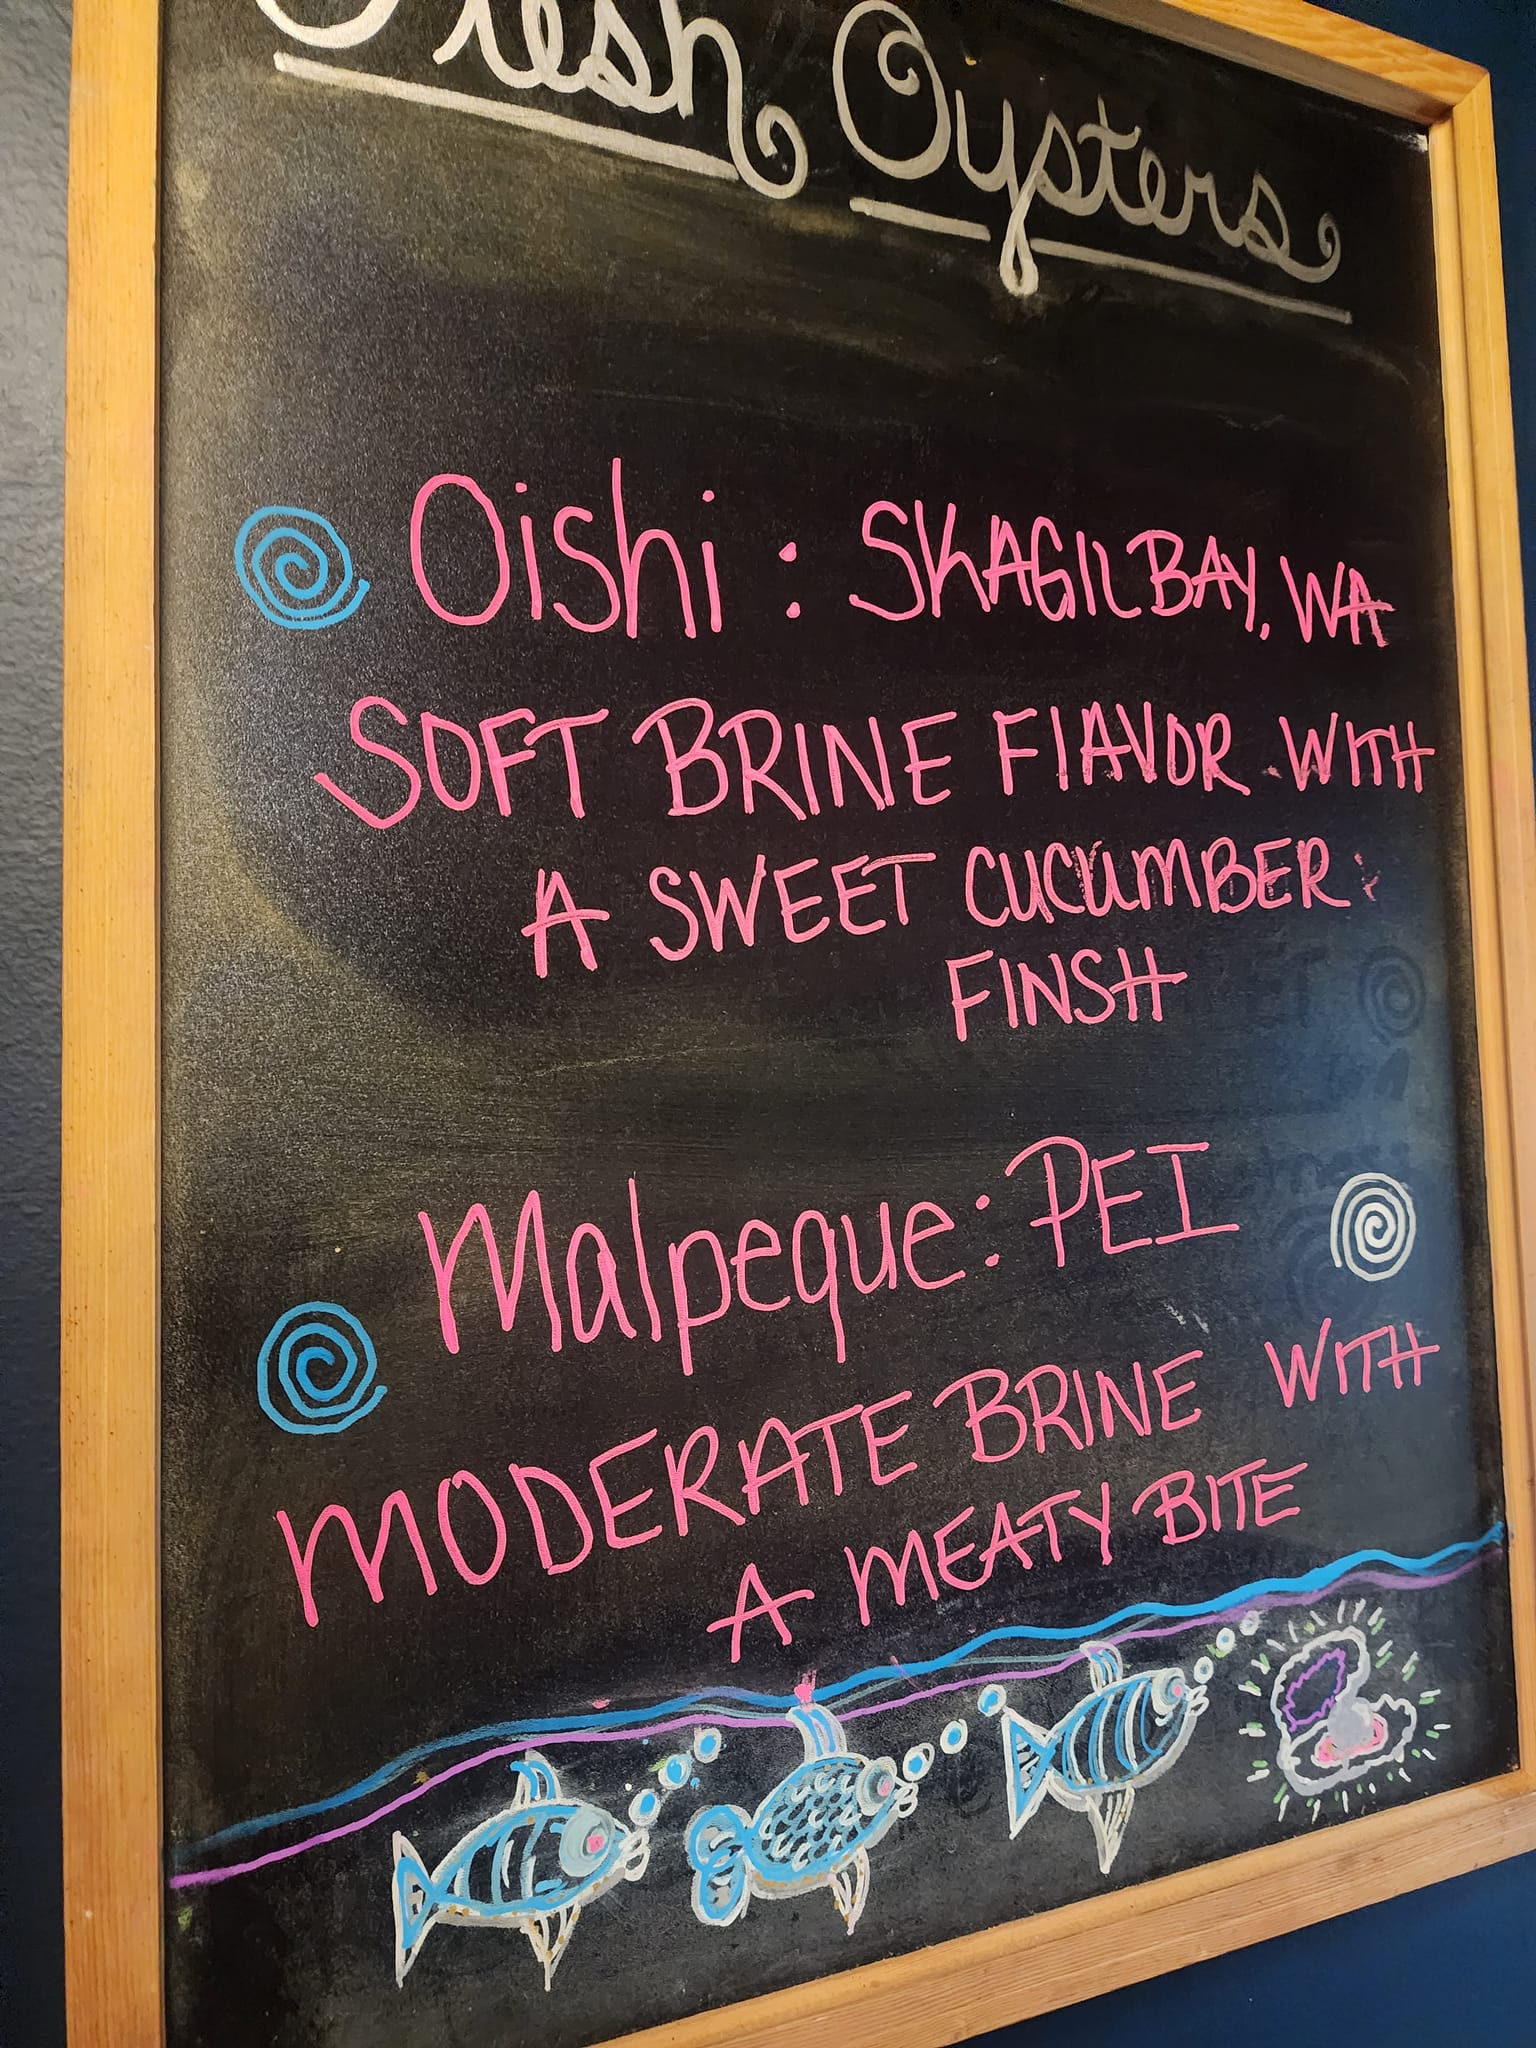 Fresh Oysters
Oishi: SKAGIL BAY, WA
SOFT BRINE FlAVOR WITH
A SWEET CUCUMBER
FINSH
Malpeque: PEI
MODERATE BRINE WITH
A MEATY BITE